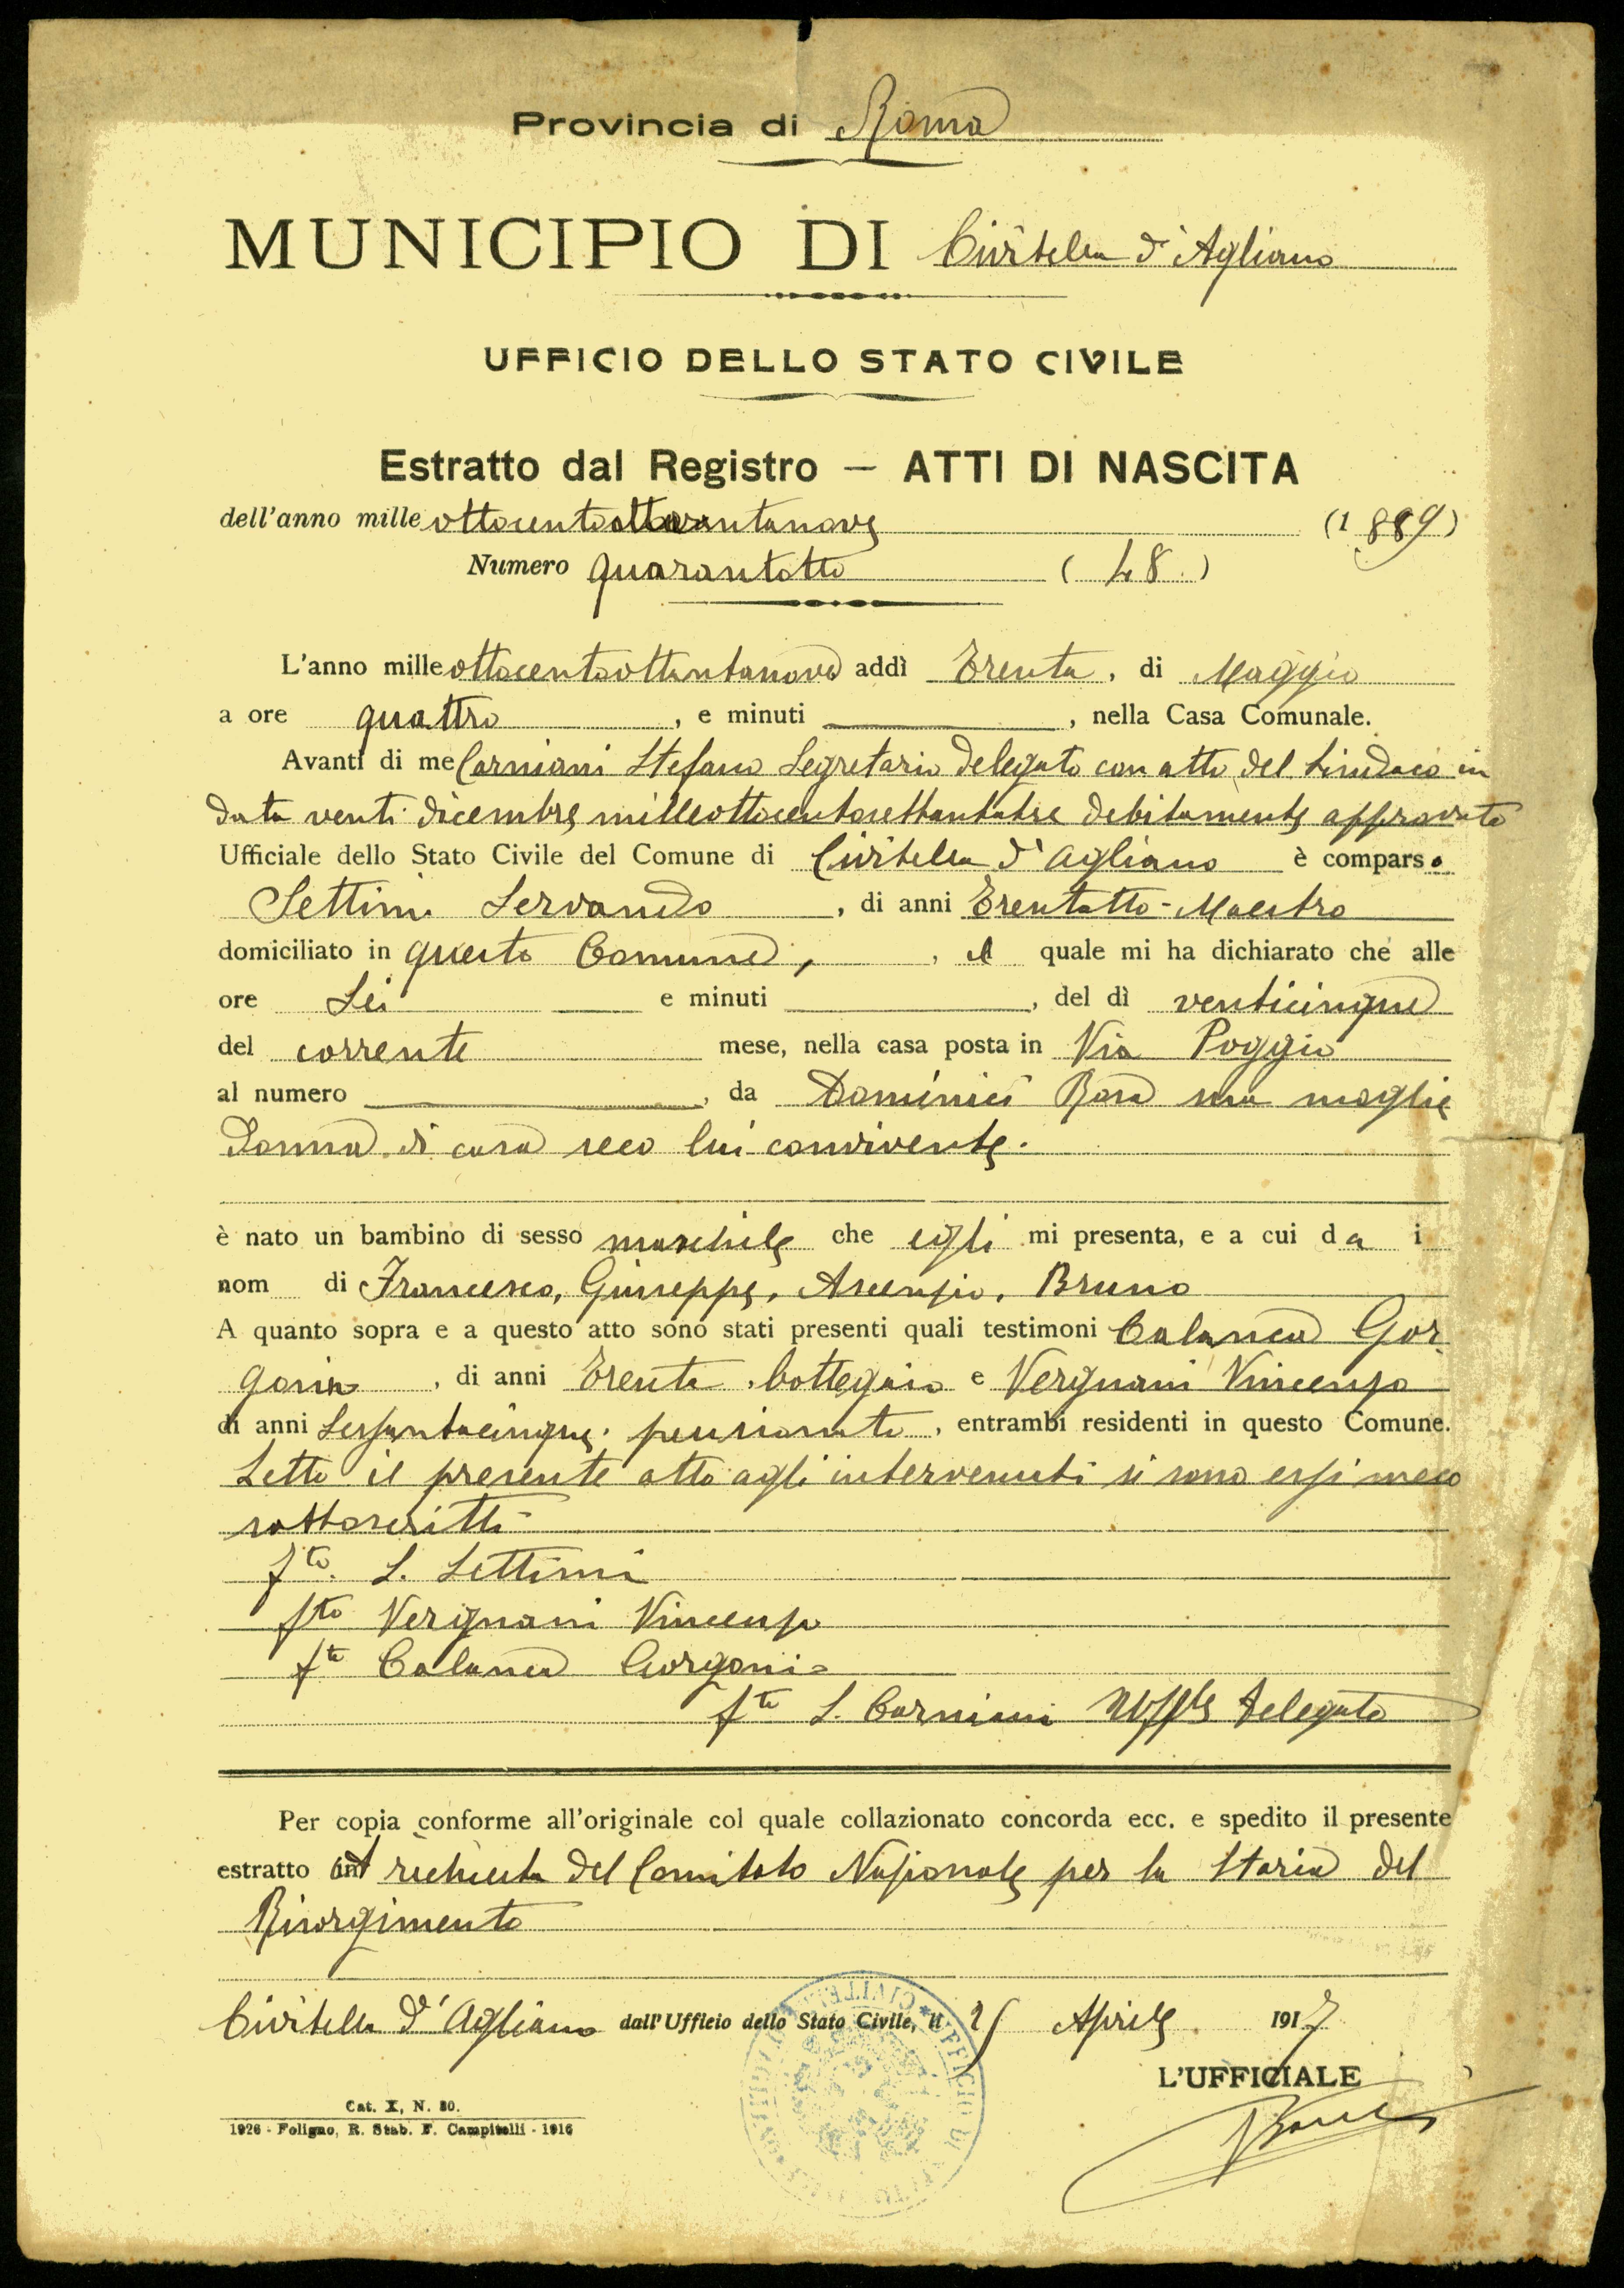 Provincia di Roma
MUNICIPIO DI Civitella d'Agliano
UFFICIO DELLO STATO CIVILE
Estratto dal Registro — ATTI DI NASCITA
dell'anno mille ottocentoottantanove (1889)
Numero quarantotto (48.)
L'anno mille ottocentoottantanove addì Trenta, di Maggio
a ore quattro, e minuti , nella Casa Comunale.
Avanti di me Carniani Stefano Segretario delegato con atto del Sindaco in
data venti dicembre milleottocentosettantatre debitamente approvato
Ufficiale dello Stato Civile del Comune di Civitella d'Agliano è comparso
Settimi Servando, di anni Trentotto - Maestro
domiciliato in questo Comune, , il quale mi ha dichiarato che alle
ore Sei e minuti , del dì venticinque
del corrente mese, nella casa posta in Via Poggio
al numero , da Dominici Rosa sua moglie
Donna di casa seco lui convivente.
è nato un bambino di sesso maschile che egli mi presenta, e a cui da i
nom di Francesco, Giuseppe, Ascenzio, Bruno
A quanto sopra e a questo atto sono stati presenti quali testimoni Calanca Gor
gonio, di anni Trenta, bottegaio e Vergnani Vincenzo
di anni Sessantacinque, pensionato, entrambi residenti in questo Comune.
Letto il presente atto agli intervenuti si sono essi meco
sottoscritti
fto. S. Settimi
fto Vergnani Vincenzo
fto Calanca Gorgonio
fto S. Carniani Uffle delegato
Per copia conforme all'originale col quale collazionato concorda ecc. e spedito il presente
estratto richiesta del Comitato Nazionale per la Storia del
Risorgimento
Civitella d'Agliano dall'Ufficio dello Stato Civile, li 25 Aprile 1917
L'UFFICIALE
Cat. X, N. 80.
1926 - Foligno, R. Stab. F. Campitelli - 1916